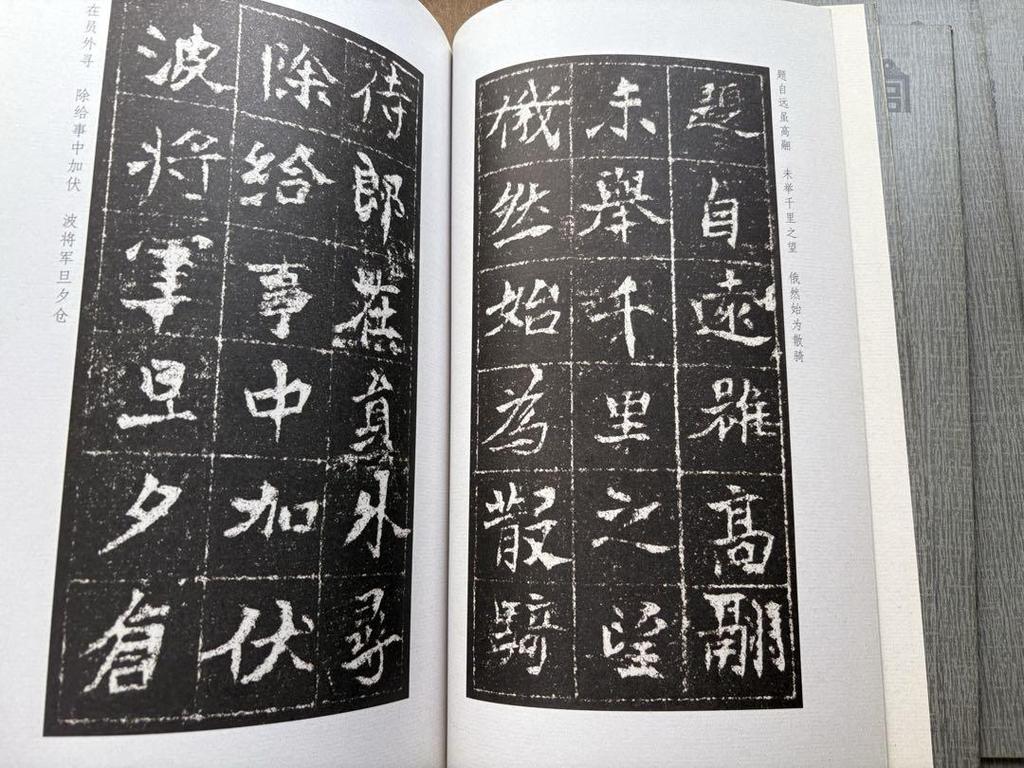 题自远虽高翮　未举千里之望　俄然始为散骑
題自遠雖高翮
未舉千里之望
俄然始為散騎
侍郎在員外尋
除給事中加伏
波將軍旦夕倉
在员外寻　除给事中加伏　波将军旦夕仓